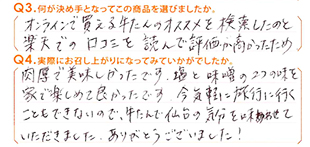 Q3.何が決め手となってこの商品を選びましたか。
オンラインで買える牛たんのオススメを検索したのと
楽天での口コミを読んで評価が高かったため
Q4.実際にお召し上がりになってみていかがでしたか。
肉厚で美味しかったです。塩と味噌の2つの味を
家で楽しめて良かったです。今気軽に旅行に行く
こともできないので、牛たんで仙台の気分を味わわせて
いただきました。ありがとうございました！